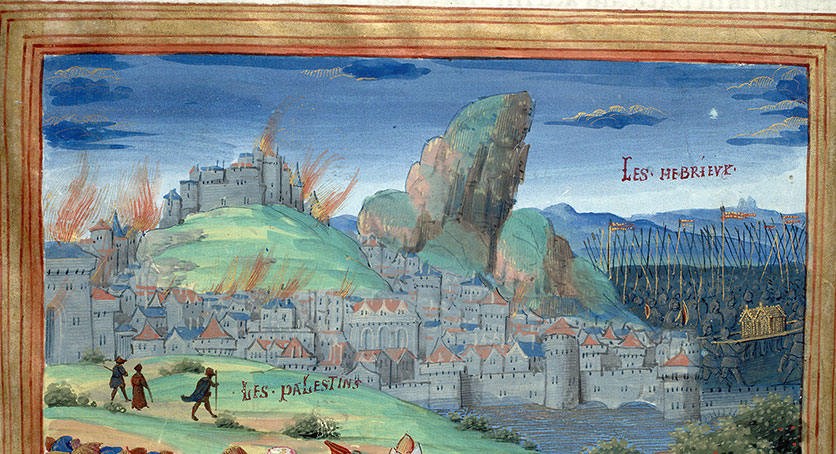 LES · HEBRIEVX ·
LES · PALESTINS